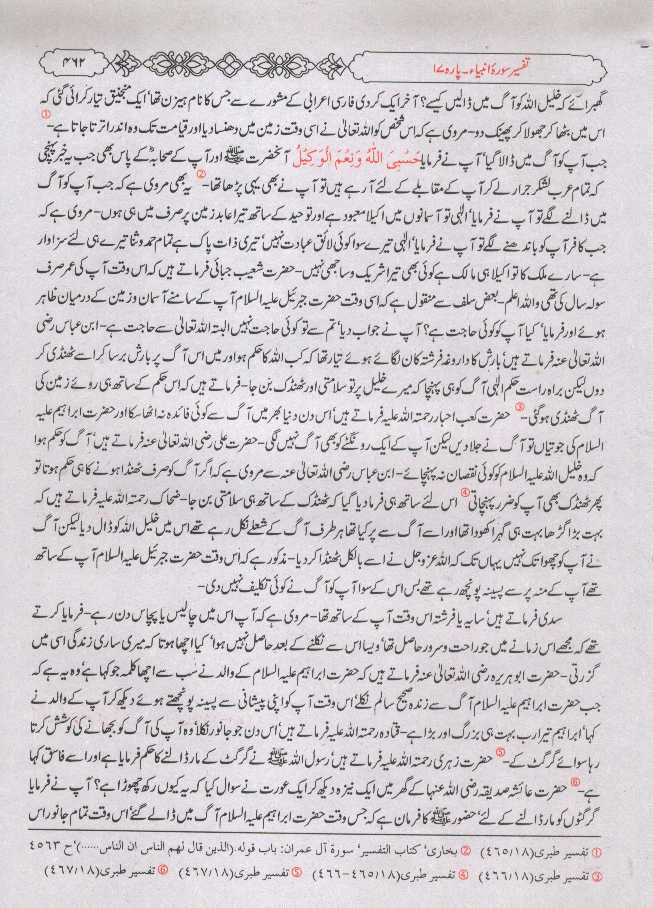 تفسیر سورۂ انبیاء۔ پارہ ۱۷
۴۶۲
گھبرائے کہ خلیل اللہ کو آگ میں ڈالیں کیسے؟ آخر ایک کردی فارسی اعرابی کے مشورے سے جس کا نام ہیزن تھا' ایک منجنیق تیار کرائی گئی کہ
اس میں بٹھا کر جھولا کر پھینک دو- مروی ہے کہ اس شخص کو اللہ تعالیٰ نے اسی وقت زمین میں دھنسا دیا اور قیامت تک وہ اندر اترتا جاتا ہے- ①
جب آپ کو آگ میں ڈالا گیا' آپ نے فرمایا حَسْبِيَ اللّٰهُ وَنِعْمَ الْوَكِيْلُ آنحضرت ﷺ اور آپ کے صحابہؓ کے پاس بھی جب یہ خبر پہنچی
کہ تمام عرب لشکر جرار لے کر آپ کے مقابلے کے لئے آ رہے ہیں تو آپ نے بھی یہی پڑھا تھا- ② یہ بھی مروی ہے کہ جب آپ کو آگ
میں ڈالنے لگے تو آپ نے فرمایا' الٰہی تو آسمانوں میں اکیلا معبود ہے اور توحید کے ساتھ تیرا عابد زمین پر صرف میں ہی ہوں- مروی ہے کہ
جب کافر آپ کو باندھنے لگے تو آپ نے فرمایا' الٰہی تیرے سوا کوئی لائق عبادت نہیں' تیری ذات پاک ہے تمام حمد و ثنا تیرے ہی لئے سزاوار
ہے- سارے ملک کا تو اکیلا ہی مالک ہے کوئی بھی تیرا شریک و ساجھی نہیں- حضرت شعیب جبائی فرماتے ہیں کہ اس وقت آپ کی عمر صرف
سولہ سال کی تھی واللہ اعلم- بعض سلف سے منقول ہے کہ اسی وقت حضرت جبرئیل علیہ السلام آپ کے سامنے آسمان و زمین کے درمیان ظاہر
ہوئے اور فرمایا' کیا آپ کو کوئی حاجت ہے؟ آپ نے جواب دیا' تم سے تو کوئی حاجت نہیں البتہ اللہ تعالیٰ سے حاجت ہے- ابن عباس رضی
اللہ تعالیٰ عنہ فرماتے ہیں' بارش کا داروغہ فرشتہ کان لگائے ہوئے تیار تھا کہ کب اللہ کا حکم ہو اور میں اس آگ پر بارش برسا کر اسے ٹھنڈی کر
دوں لیکن براہ راست حکم الٰہی آگ کو ہی پہنچا کہ میرے خلیل پر تو سلامتی اور ٹھنڈک بن جا- فرماتے ہیں کہ اس حکم کے ساتھ ہی روئے زمین کی
آگ ٹھنڈی ہو گئی- ③ حضرت کعب احبار رحمتہ اللہ علیہ فرماتے ہیں' اس دن دنیا بھر میں آگ سے کوئی فائدہ نہ اٹھا سکا اور حضرت ابراہیم علیہ
السلام کی جوتیاں تو آگ نے جلا دیں لیکن آپ کے ایک رونگٹے کو بھی آگ نہیں لگی- حضرت علی رضی اللہ تعالیٰ عنہ فرماتے ہیں' آگ کو حکم ہوا
کہ وہ خلیل اللہ علیہ السلام کو کوئی نقصان نہ پہنچائے- ابن عباس رضی اللہ تعالیٰ عنہ سے مروی ہے کہ اگر آگ کو صرف ٹھنڈا ہونے کا ہی حکم ہوتا تو
پھر ٹھنڈک بھی آپ کو ضرر پہنچاتی ④ اس لئے ساتھ ہی فرما دیا گیا کہ ٹھنڈک کے ساتھ ہی سلامتی بن جا- ضحاک رحمتہ اللہ علیہ فرماتے ہیں کہ
بہت بڑا گڑھا بہت ہی گہرا کھودا تھا اور اسے آگ سے پر کیا تھا ہر طرف آگ کے شعلے نکل رہے تھے اس میں خلیل اللہ کو ڈال دیا لیکن آگ
نے آپ کو چھوا تک نہیں یہاں تک کہ اللہ عزوجل نے اسے بالکل ٹھنڈا کر دیا- مذکور ہے کہ اس وقت حضرت جبرئیل علیہ السلام آپ کے ساتھ
تھے آپ کے منہ پر سے پسینہ پونچھ رہے تھے بس اس کے سوا آپ کو آگ نے کوئی تکلیف نہیں دی-
سدی فرماتے ہیں' سایہ یا فرشتہ اس وقت آپ کے ساتھ تھا- مروی ہے کہ آپ اس میں چالیس یا پچاس دن رہے- فرمایا کرتے
تھے کہ مجھے اس زمانے میں جو راحت و سرور حاصل تھا' ویسا اس سے نکلنے کے بعد حاصل نہیں ہوا' کیا اچھا ہوتا کہ میری ساری زندگی اسی میں
گزرتی- حضرت ابوہریرہ رضی اللہ تعالیٰ عنہ فرماتے ہیں کہ حضرت ابراہیم علیہ السلام کے والد نے سب سے اچھا کلمہ جو کہا ہے' وہ یہ ہے کہ
جب حضرت ابراہیم علیہ السلام آگ سے زندہ صحیح سالم نکلے' اس وقت آپ کو اپنی پیشانی سے پسینہ پونچھتے ہوئے دیکھ کر آپ کے والد نے
کہا' ابراہیم تیرا رب بہت ہی بزرگ اور بڑا ہے- قتادہ رحمتہ اللہ علیہ فرماتے ہیں' اس دن جو جانور نکلا' وہ آپ کی آگ کو بجھانے کی کوشش کرتا
رہا سوائے گرگٹ کے- ⑤ حضرت زہری رحمتہ اللہ علیہ فرماتے ہیں' رسول اللہ ﷺ نے گرگٹ کے مار ڈالنے کا حکم فرمایا ہے اور اسے فاسق کہا
ہے- ⑥ حضرت عائشہ صدیقہ رضی اللہ عنہا کے گھر میں ایک نیزہ دیکھ کر ایک عورت نے سوال کیا کہ یہ کیوں رکھ چھوڑا ہے؟ آپ نے فرمایا
گرگٹوں کو مار ڈالنے کے لئے' حضور ﷺ کا فرمان ہے کہ جس وقت حضرت ابراہیم علیہ السلام آگ میں ڈالے گئے' اس وقت تمام جانور اس
① تفسیر طبری (۱۸/۴۶۵) ② بخاری' کتاب التفسیر' سورۃ آل عمران: باب قولہ (الذین قال لهم الناس ان الناس......)' ح ۴۵۶۳
③ تفسیر طبری (۱۸/۴۶۶) ④ تفسیر طبری (۱۸/۴۶۵-۴۶۶) ⑤ تفسیر طبری (۱۸/۴۶۷) ⑥ تفسیر طبری (۱۸/۴۶۷)